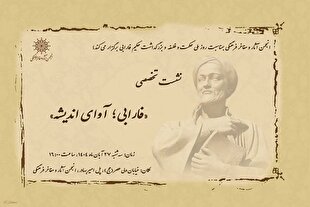 انجمن آثار و مفاخر فرهنگی بمناسبت روز ملی حکمت و فلسفه و بزرگداشت حکیم فارابی برگزار می کند؛
نشست تخصصی
«فارابی؛ آوای اندیشه»
زمان: سه شنبه ۲۷ آبان ماه ۱۴۰۴، ساعت ۱۶:۰۰
مکان: خیابان ولی عصر(عج)، پل امیربهادر، انجمن آثار و مفاخر فرهنگی